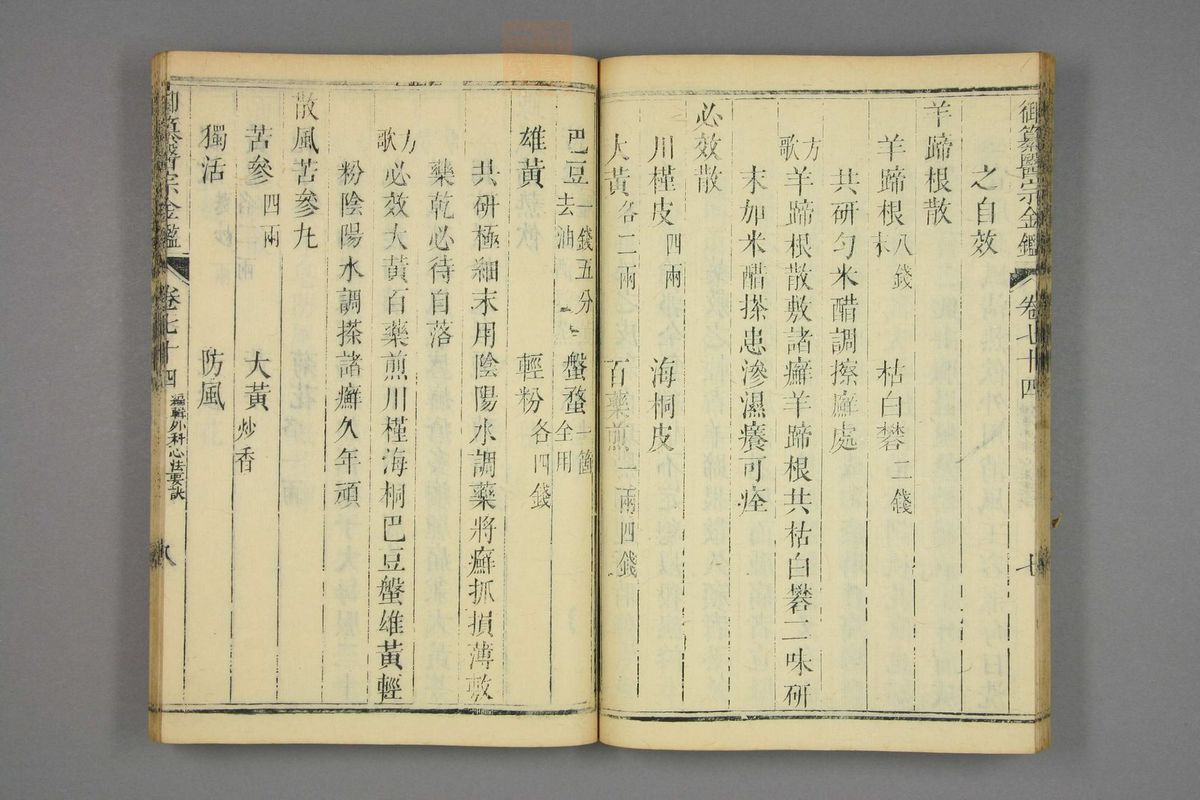 御纂醫宗金鑑 卷七十四 七
之自效
羊蹄根散
羊蹄根末八錢 枯白礬二錢
共研勻米醋調擦癬處
方歌 羊蹄根散敷諸癬羊蹄根共枯白礬二味研
末加米醋搽患滲濕癢可痊
必效散
川槿皮四兩 海桐皮
大黃各二兩 百藥煎一兩四錢
巴豆一錢五分去油 盤蝥一箇全用
雄黃 輕粉各四錢
共研極細末用陰陽水調藥將癬抓損薄敷
藥乾必待自落
方歌 必效大黃百藥煎川槿海桐巴豆盤雄黃輕
粉陰陽水調搽諸癬久年頑
散風苦參丸
苦參四兩 大黃炒香
獨活 防風
御纂醫宗金鑑 卷七十四 編輯外科心法要訣 八